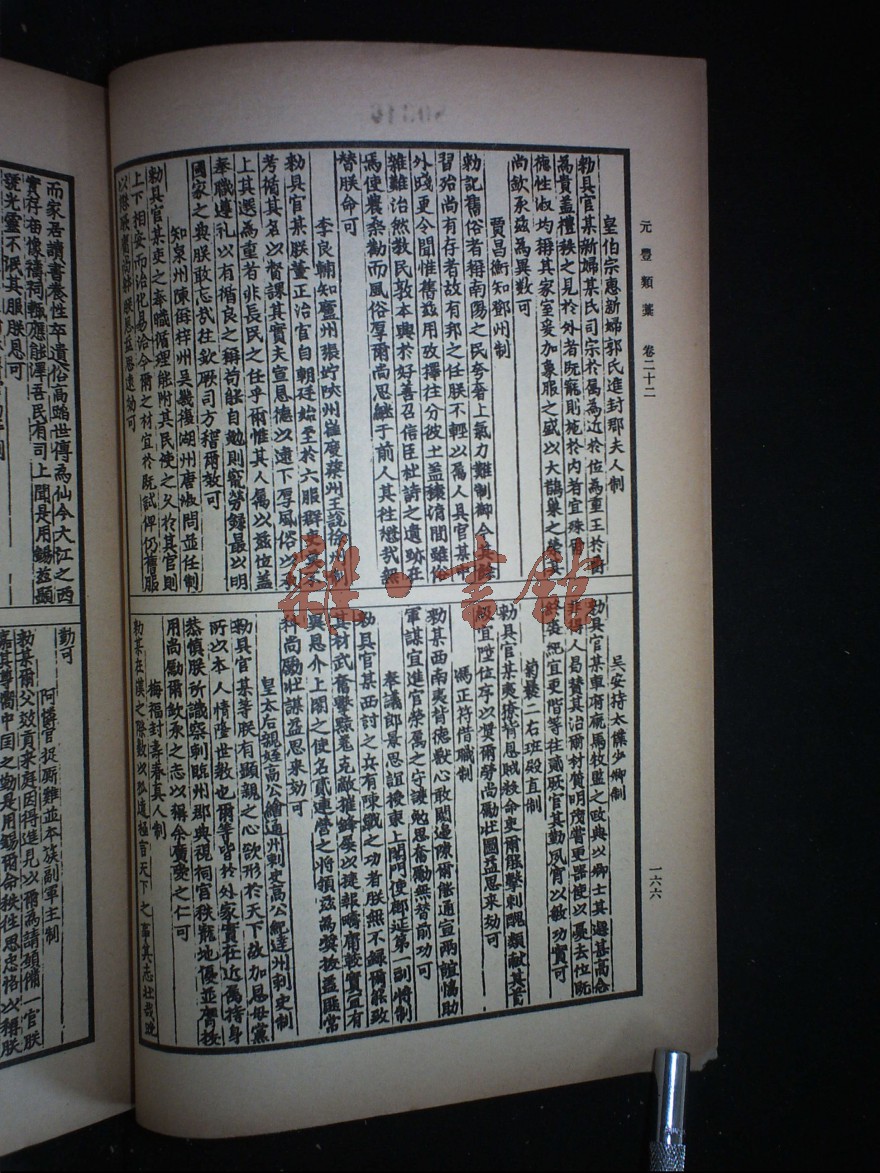 元豐類藁 卷二十二
一六六
皇伯宗惠新婦郭氏進封郡夫人制
勑具官某新婦某氏司宗於屬為近於位為重王於
為貴蓋禮秩之見於外者既寵則施於內者宜殊爾
德性淑均稱其家室妾加象服之盛以大鵲巢之榮夫
尚欽承茲為異數可
賈昌衡知鄧州制
勑記舊俗者稱南陽之民夸奢上氣力難制御今其餘
習殆尚有存者故有邦之任朕不輕以屬人具官某中
外踐更令聞惟舊茲用改擇往分彼土蓋穰淯間雖俗
雜難治然教民敦本興於好善召信臣杜詩之遺跡在
焉使農桑勸而風俗厚爾尚思繼于前人其往懋哉無
替朕命可
李良輔知壽州張竚陝州崔度蔡州王說徐州制
勑具官某朕董正治官自朝廷始至於六服群吏莫不
考循其名以督課其實夫宣恩德以遠下厚風俗以承
上其選為重者非長民之任乎爾惟其人屬以茲位蓋
奉職遵禮以有循良之稱苟能自勉則寵勞錄最以明
國家之典朕敢忘哉往欽厥司方稽爾效可
知泉州陳偁梓州吳幾復湖州唐淑問並任制
勑具官某吏之奉職循理能附其民使之久於其官則
上下相安而治化易洽今爾之材宜於既試俾仍舊服
吳安持太僕少卿制
勑具官某車府廄馬牧監之政典以卿士其選甚高念
非得人曷贊其治爾材質明茂嘗更器使以憂去位既
終喪紀宜更階等往踐厥官其勤夙宵以敏功實可
二右班殿直制
勑具官某夷獠背恩賊殺命吏爾能擊刺醜類獻其
級宜陞位序以獎爾勞尚勵壯圖益思來効可
馮正符借職制
勑某西南夷背德獸心敢闚邊隙爾能通宣兩誼協助
軍謀宜進官榮厲之守諫勉思奮勵無替前功可
奉議郎景思誼授東上閤門使鄜延第一副將制
勑具官某西討之兵有陳戰之功者朕無不錄爾能致
其材武奮擊黠羌克敵摧鋒屢以捷報疇庸較實宜有
異恩介上閤之使名貳連營之將領茲為獎拔蓋匪常
科尚勵壯謀益思來効可
皇太后親姪高公繪通州刺史高公紀達州刺史制
勑具官某等朕有顯親之心欲形於天下故加恩母黨
所以本人情隆世教也爾等皆於外家實在近屬持身
恭慎朕所識察刺臨州郡典視祠官秩寵地優並膺
用尚勵爾欽承之志以稱余廣愛之仁可
梅福封壽春真人制
勑某在漢之際數以孤遠極言天下之事其志壯哉迨
而家居讀書養性卒遺俗高蹈世傳為仙今大江之西
實存廟像禱祠輒應能澤吾民有司上聞是用錫茲顯
號光靈不泯其服朕恩可
勤可
阿機官捉廝雞並本族副軍主制
勑某爾父效貢來庭因得進見以爾為請願備一官朕
嘉其專嚮中國之勤是用錫爾命秩往思忠恪以稱朕